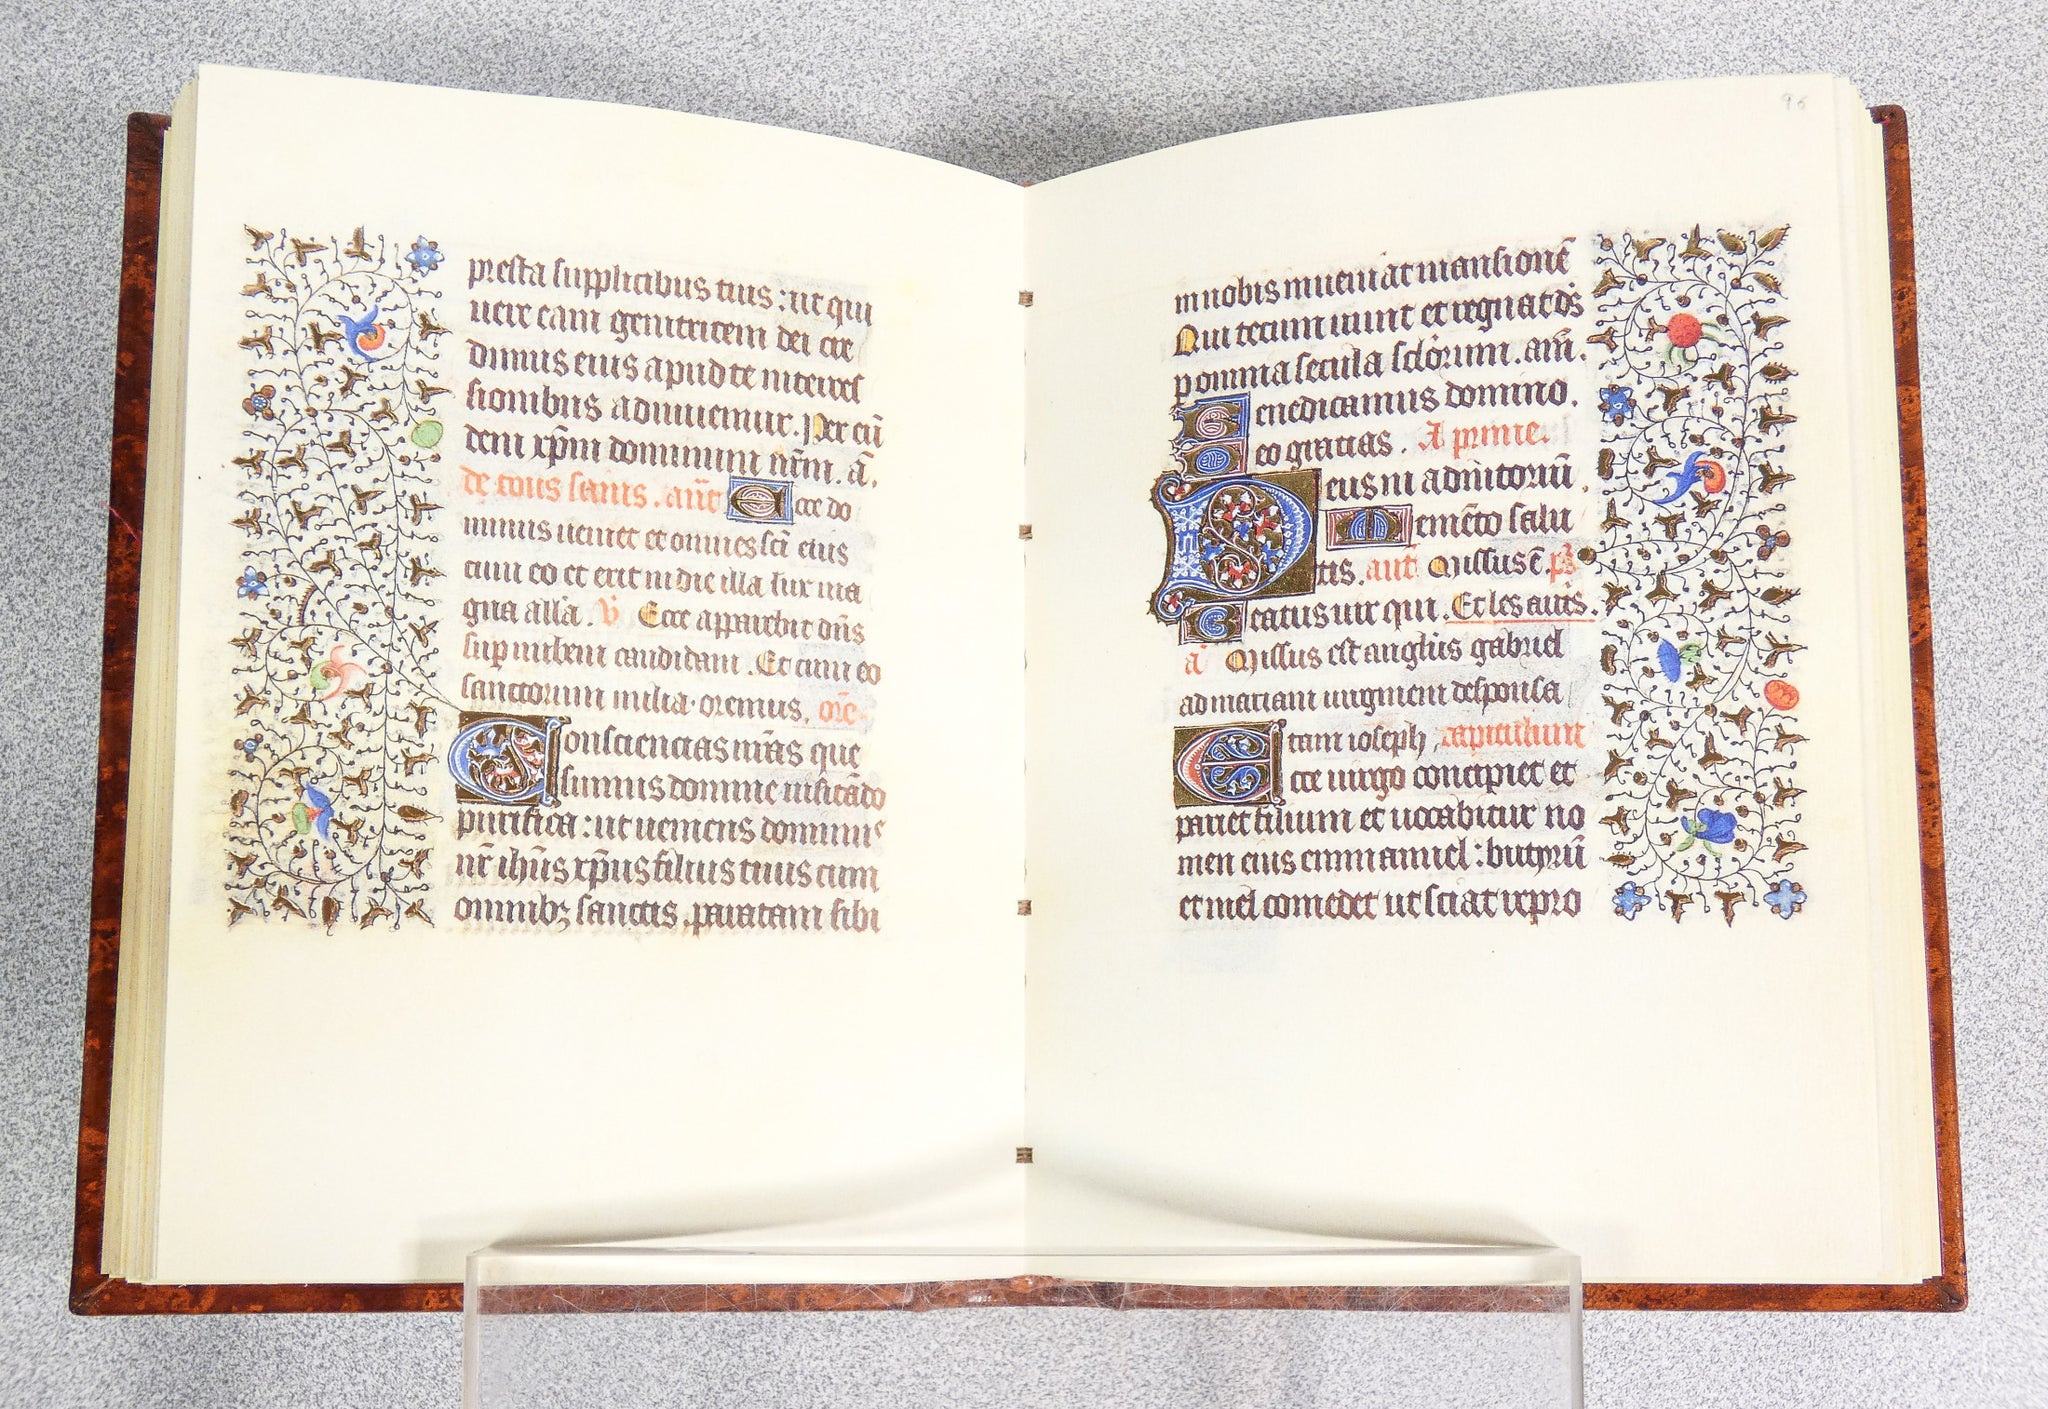 presta supplicibus tuis : ut qui
uere eam genitricem dei cre
dimus eius apud te interces
sionibus adiuuemur. Per eū
dem xp̄m dominum nr̄m. ā.
de tous sains. ant̄ Ecce do
minus ueniet et omnes sc̄i eius
cum eo et erit in die illa lux ma
gna all̄a. V̄ Ecce apparebit dn̄s
super nubem candidam. Et cum eo
sanctorum milia. oremus. orē
Conscientias nr̄as que
sumus domine uisitādo
purifica : ut ueniens dominus
nr̄ ihūs xp̄us filius tuus cum
omnibꝫ sanctis. paratam sibi
96
in nobis inueniat mansionē
Qui tecum uiuit et regnat d̄s
per omnia secula sc̄lorum. am̄.
Benedicamus domino.
Deo gratias. A prime.
Deus in adiutoriū
Memēto salu
tis. ant̄ Missus ē. p̄s
Beatus uir qui. Et les autr̄s.
ā Missus est angelus gabriel
ad mariam uirginem desponsa
tam ioseph. capitulum
Ecce uirgo concipiet et
pariet filium et uocabitur no
men eius emmanuel : butyrū
et mel comedet ut sciat repro